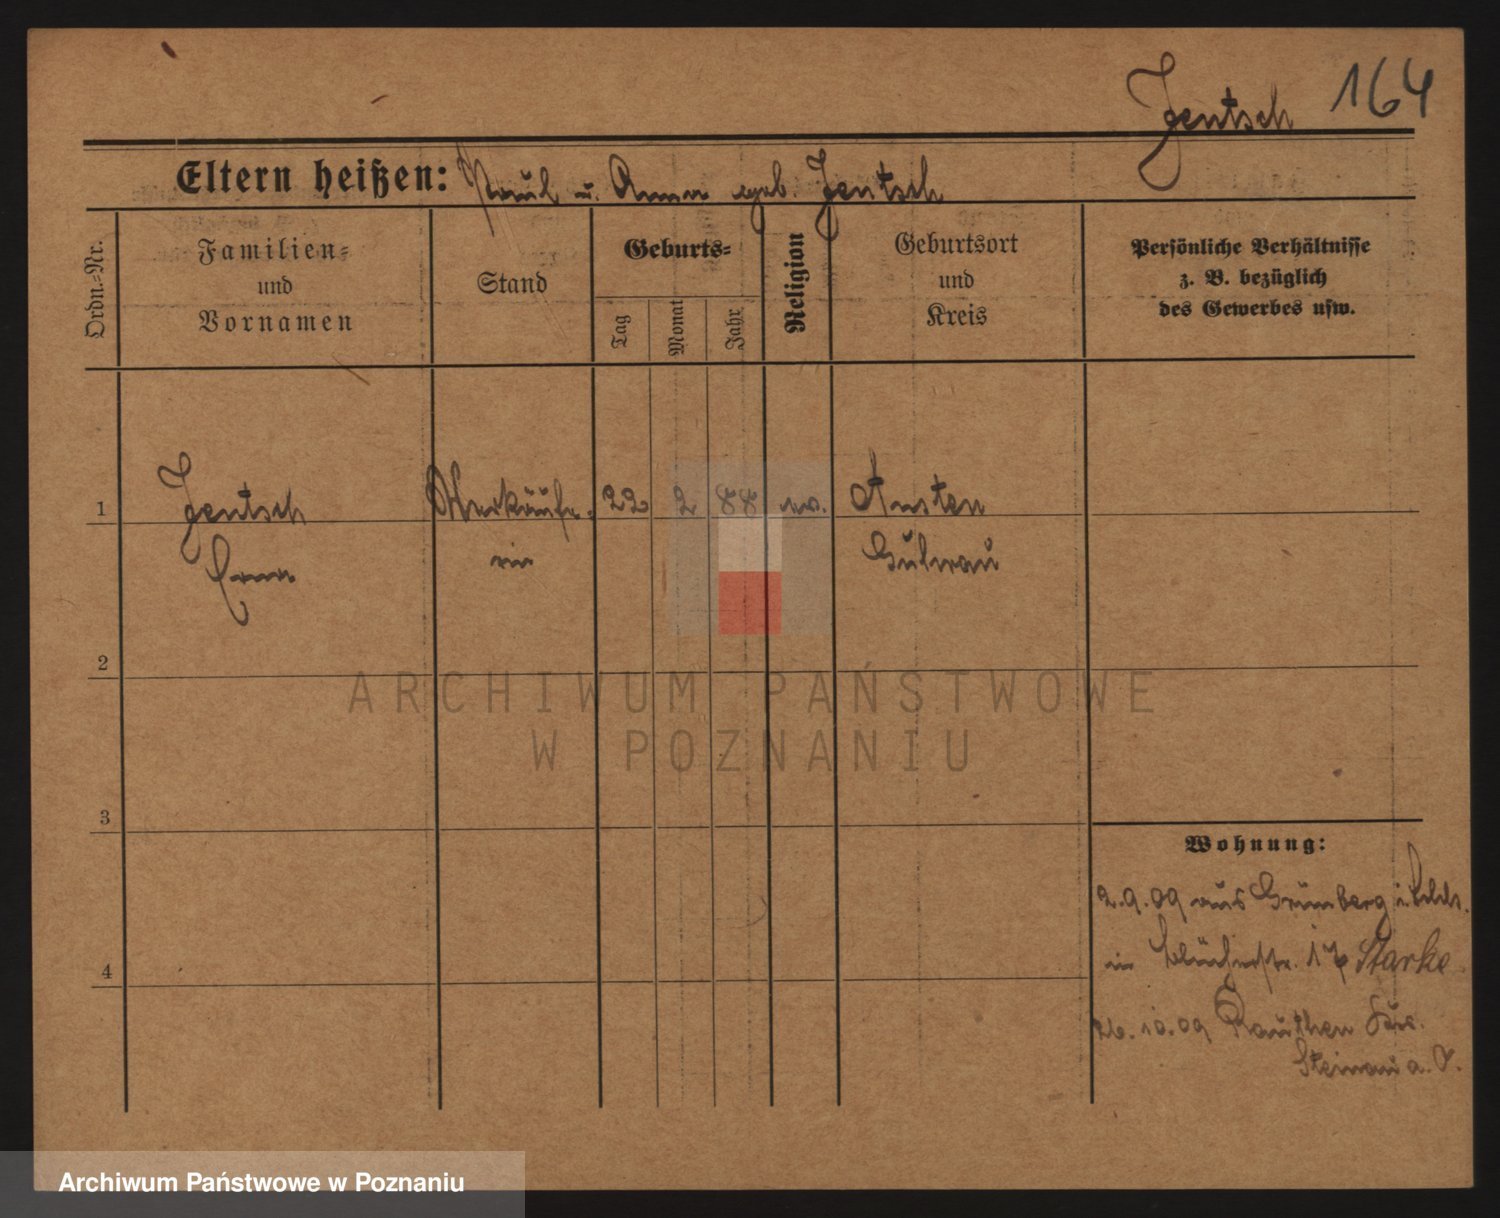 Jentsch 164
Eltern heißen: Paul u. Anna geb. Jentsch
Ordn.-Nr.
Familien-
und
Vornamen
Stand
Geburts-
Tag
Monat
Jahr
Religion
Geburtsort
und
Kreis
Persönliche Verhältnisse
z. B. bezüglich
des Gewerbes usw.
1 Jentsch Verkäufe- 22 2 88 ev. Austen
Erna rin Guhrau
2
ARCHIWUM PAŃSTWOWE
W POZNANIU
3
Wohnung:
2.9.09 aus Grünberg i. Schls.
4
in Blücherstr. 17 Starke
26.10.09 Rauthen
Steinau a. O.
Archiwum Państwowe w Poznaniu